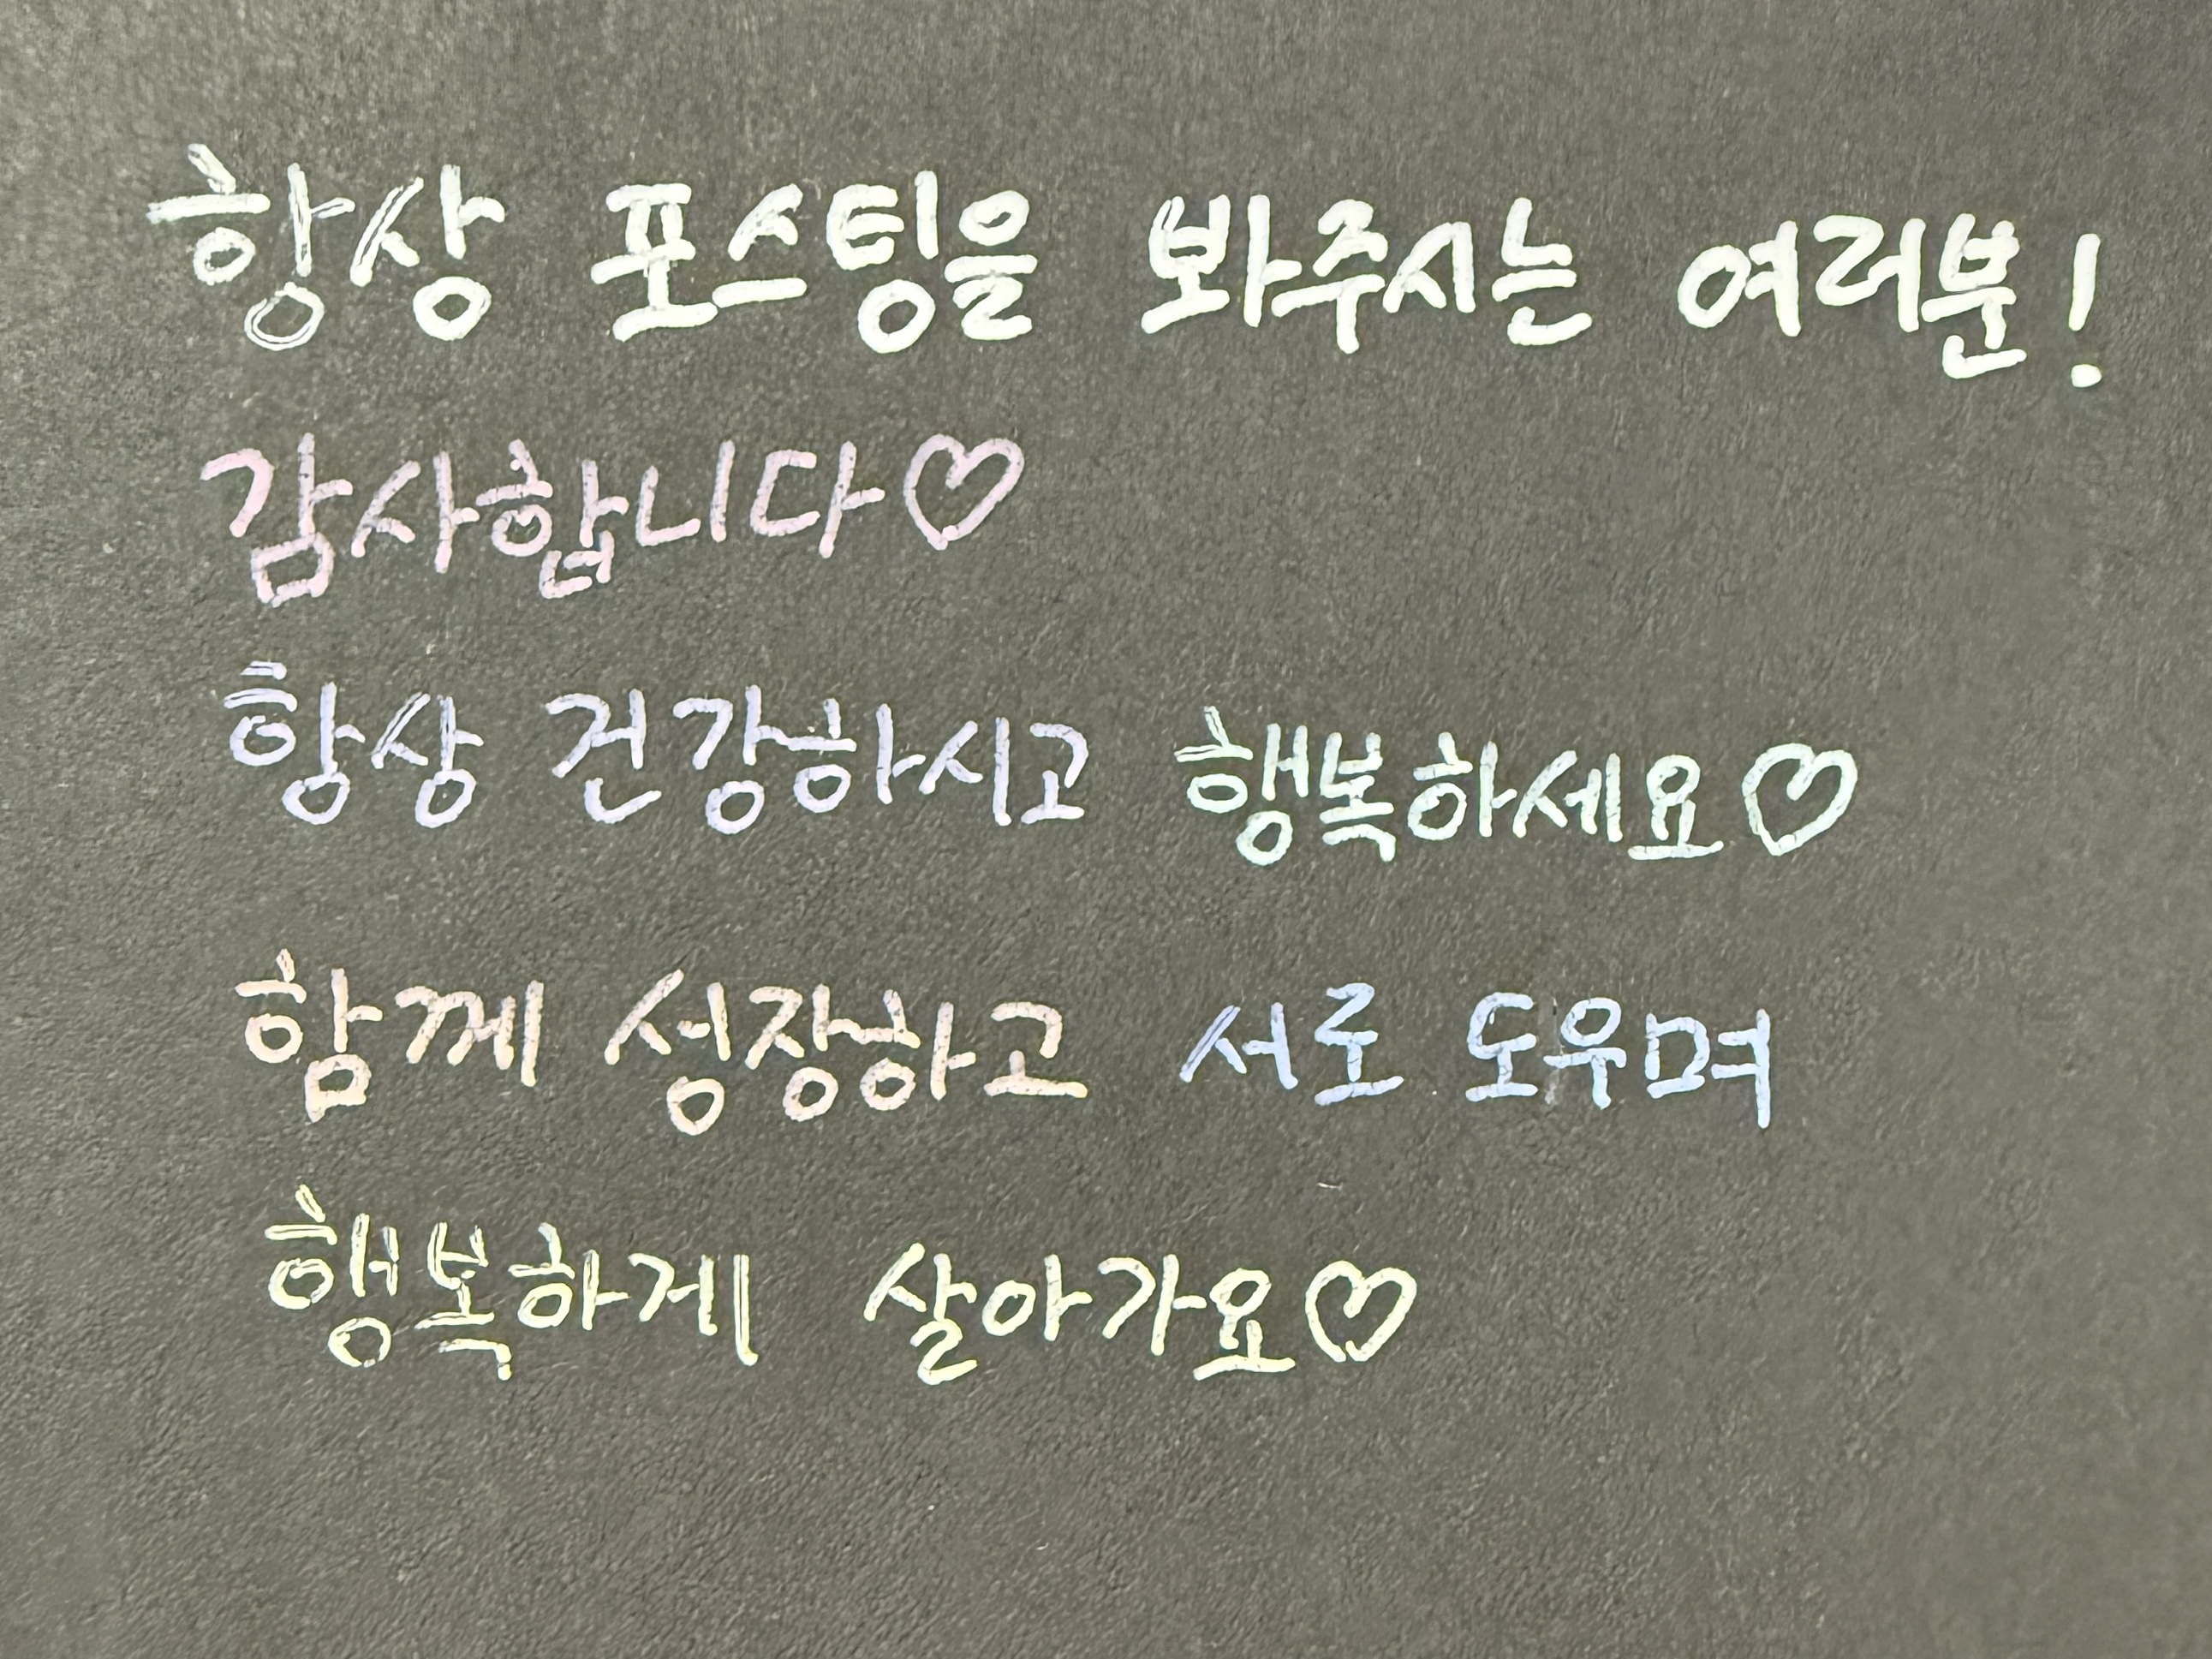 항상 포스팅을 봐주시는 여러분!
감사합니다♡
항상 건강하시고 행복하세요♡
함께 성장하고 서로 도우며
행복하게 살아가요♡